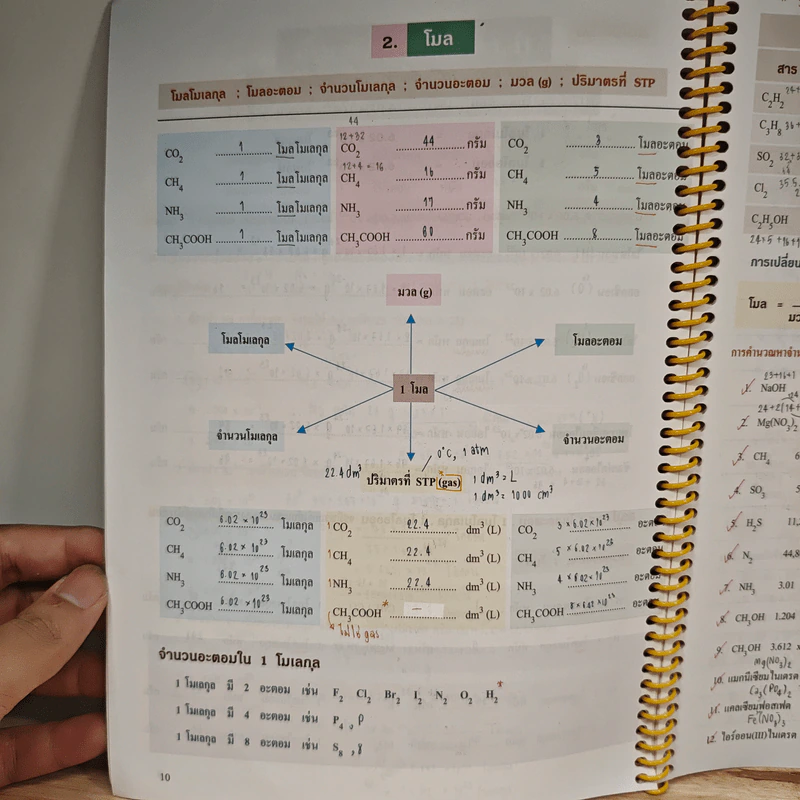 2. โมล
โมลโมเลกุล ; โมลอะตอม ; จำนวนโมเลกุล ; จำนวนอะตอม ; มวล (g) ; ปริมาตรที่ STP
44
12+32
CO2 1 โมลโมเลกุล CO2 44 กรัม CO2 3 โมลอะตอม
12+4 = 16
CH4 1 โมลโมเลกุล CH4 16 กรัม CH4 5 โมลอะตอม
NH3 1 โมลโมเลกุล NH3 17 กรัม NH3 4 โมลอะตอม
CH3COOH 1 โมลโมเลกุล CH3COOH 60 กรัม CH3COOH 8 โมลอะตอม
มวล (g)
โมลโมเลกุล โมลอะตอม
1 โมล
จำนวนโมเลกุล จำนวนอะตอม
0°C, 1 atm
22.4 dm3 ปริมาตรที่ STP (gas) 1 dm3 = L
1 dm3 = 1000 cm3
CO2 6.02 × 1023 โมเลกุล 1 CO2 22.4 dm3 (L) CO2 3 × 6.02 × 1023 อะตอ
CH4 6.02 × 1023 โมเลกุล 1 CH4 22.4 dm3 (L) CH4 5 × 6.02 × 1023 อะตอ
NH3 6.02 × 1023 โมเลกุล 1 NH3 22.4 dm3 (L) NH3 4 × 6.02 × 1023 อะ
CH3COOH 6.02 × 1023 โมเลกุล CH3COOH* – dm3 (L) CH3COOH 8 × 6.02 × 1023 อะ
ไม่ใช่ gas
จำนวนอะตอมใน 1 โมเลกุล
1 โมเลกุล มี 2 อะตอม เช่น F2 Cl2 Br2 I2 N2 O2 H2*
1 โมเลกุล มี 4 อะตอม เช่น P4, P
1 โมเลกุล มี 8 อะตอม เช่น S8, 8
10
สาร
C2H2
C3H8
SO2
Cl2
C2H5OH
การเปลี่ยน
โมล =
การคำนวณหาจำ
23+16+1
1. NaOH
2. Mg(NO3)2
3. CH4 6
4. SO3 5
5. H2S 11,
6. N2 44,8
7. NH3 3.01
8. CH3OH 1.204
9. CH3OH 3.612 x
Mg(NO3)2
10. แมกนีเซียมไนเตรต
Ca3(PO4)2
11. แคลเซียมฟอสเฟต
Fe(NO3)3
12. ไอร์ออน(III)ไนเตรต